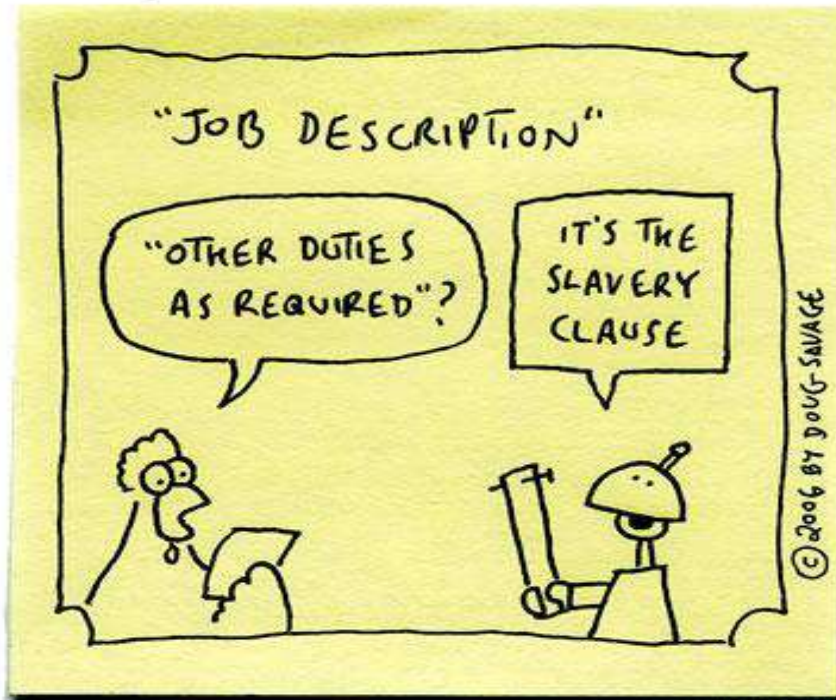 "JOB DESCRIPTION"
"OTHER DUTIES
AS REQUIRED"?
IT'S THE
SLAVERY
CLAUSE
© 2006 BY DOUG SAVAGE